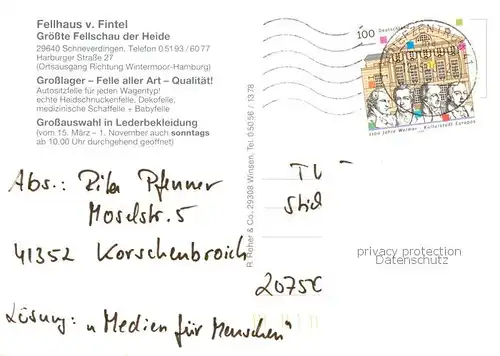 Fellhaus v. Fintel
Größte Fellschau der Heide
29640 Schneverdingen, Telefon 05193/6077
Harburger Straße 27
(Ortsausgang Richtung Wintermoor-Hamburg)
Großlager – Felle aller Art – Qualität!
Autositzfelle für jeden Wagentyp!
echte Heidschnuckenfelle, Dekofelle,
medizinische Schaffelle + Babyfelle
Großauswahl in Lederbekleidung
(vom 15. März – 1. November auch sonntags
ab 10.00 Uhr durchgehend geöffnet)
Abs.:
Pfenner
Moselstr. 5
41352 Korschenbroich
Lösung: "Medien für Menschen"
R. Roher & Co., 29308 Winsen, Tel. 05056 / 1378
100 Deutschl
1100 Jahre Weimar - Kulturstadt Europas
TV -
2075
privacy protection
Datenschutz